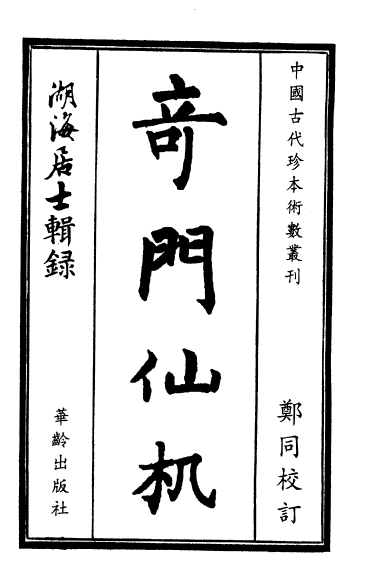 中國古代珍本術數叢刊
鄭同校訂
奇門仙机
湖海居士輯録
華齡出版社